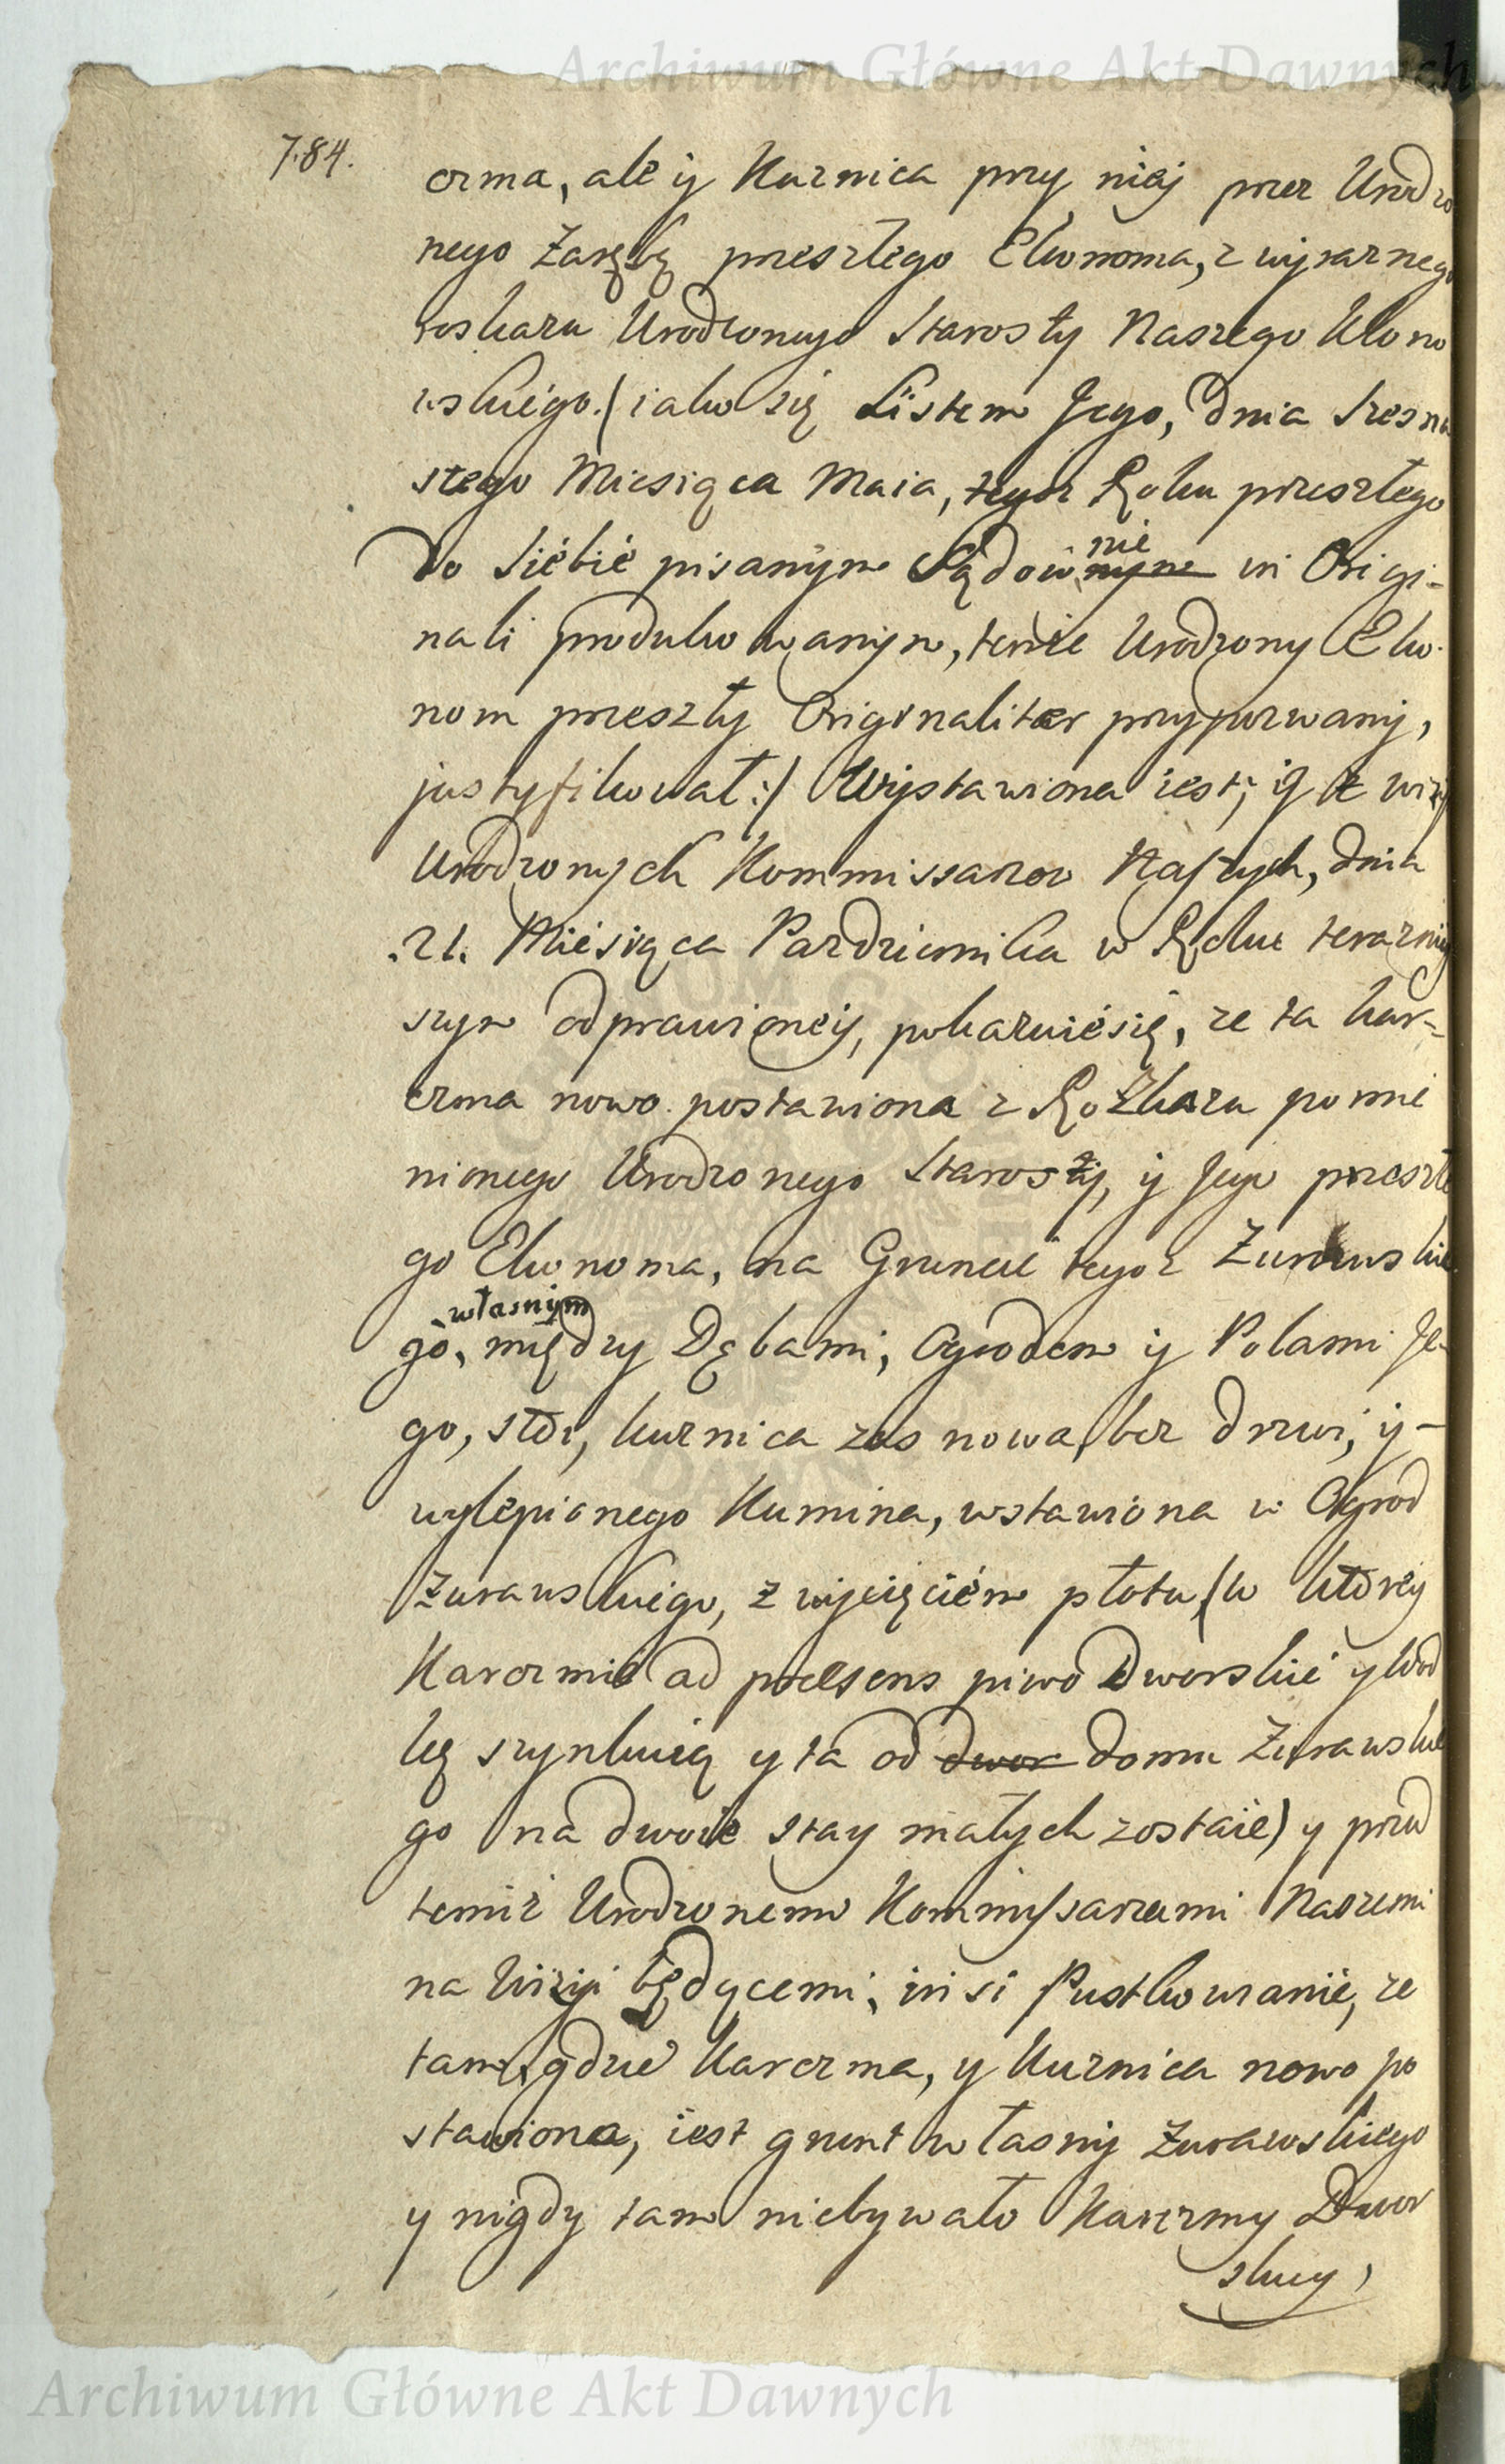 Archiwum Główne Akt Dawnych
784.
czma, ale y Kuznica przy niey przez Urodzo
nego Zarębę przeszłego Ekonoma, z wyraznego
roskazu Urodzonego Starosty Naszego Klono
wskiego (iako się Listem Jego, dnia Szesna
stego Miesiąca Maia, tegoz Roku przeszłego
do Siebie pisanym Sądownie in Origi-
nali produkowanym, tenże Urodzony Eko
nom przeszły Originaliter przypozwany,
justyfikował:) Wystawiona iest, iz z wizyi
Urodzonych Kommissarzow Naszych, dnia
.21. Miesiąca Pazdziernika w Roku terazniey
szym odprawioney, pokazuie się, ze ta kar-
czma nowo postawiona z Rozkazu pomie
nionego Urodzonego Starosty, y Jego przeszłe
go Ekonoma, na Gruncie tegoz Zurawskie
własnym
go, między Dębami, Ogrodem y Polami Je
go, stoi, kuznica zas nowa, bez drzwi, y-
wylepionego Kumina, wstawiona w Ogrod
Zurawskiego, z wycięciem płotu, (w ktorey
Karczmie ad praesens piwo Dworskie y Wod
kę szynkuią y ta od dwor domu Zurawskie
go na dwoie stay małych zostaie) y przed
temiz Urodzonemi Kommissarzami Naszemi
na Wizyi będącemi, insi Pustkowianie, ze
tam, gdzie Karczma, y Kuznica nowo po
stawiona, iest grunt własny Zurawskiego
y nigdy tam niebywało Karczmy Dwor
skiey,
Archiwum Główne Akt Dawnych